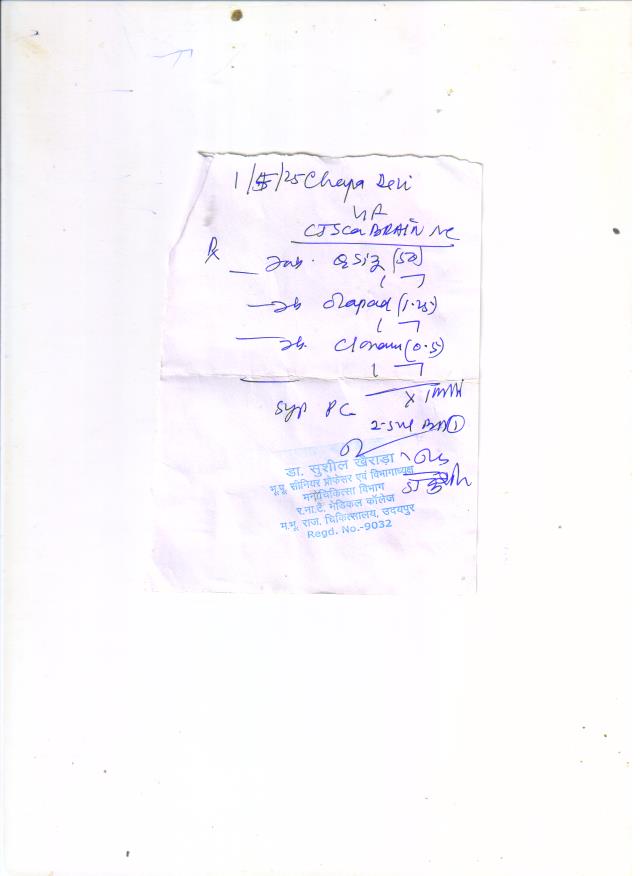 1/5/25 Chapa Devi
CT Scan BRAIN NC
Rx
Tab. Qsiz (50)
Tab. Olapad (1.25)
Tab. Clonam (0.5)
x 1 mnth
Syp PC
2-5 ml BD ①
डा. सुशील खेराड़ा
भू.पू. सीनियर प्रोफेसर एवं विभागाध्यक्ष
मनोचिकित्सा विभाग
र.ना.टै. मेडिकल कॉलेज
म.भू. राज. चिकित्सालय, उदयपुर
Regd. No.-9032